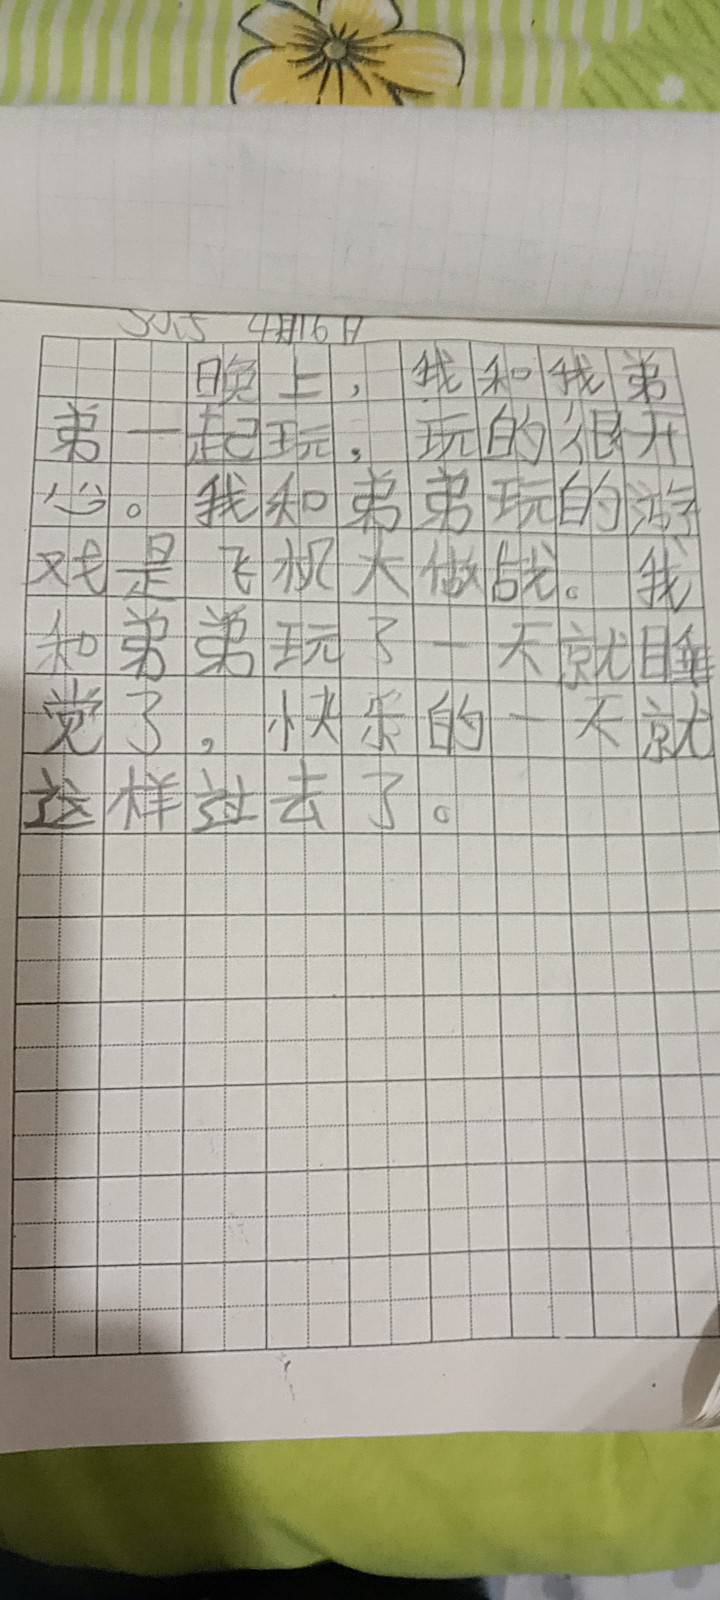 4月16日
晚上，我和我弟
弟一起玩，玩的很开
心。我和弟弟玩的游
戏是飞机大做战。我
和弟弟玩了一天就睡
觉了，快乐的一天就
这样过去了。